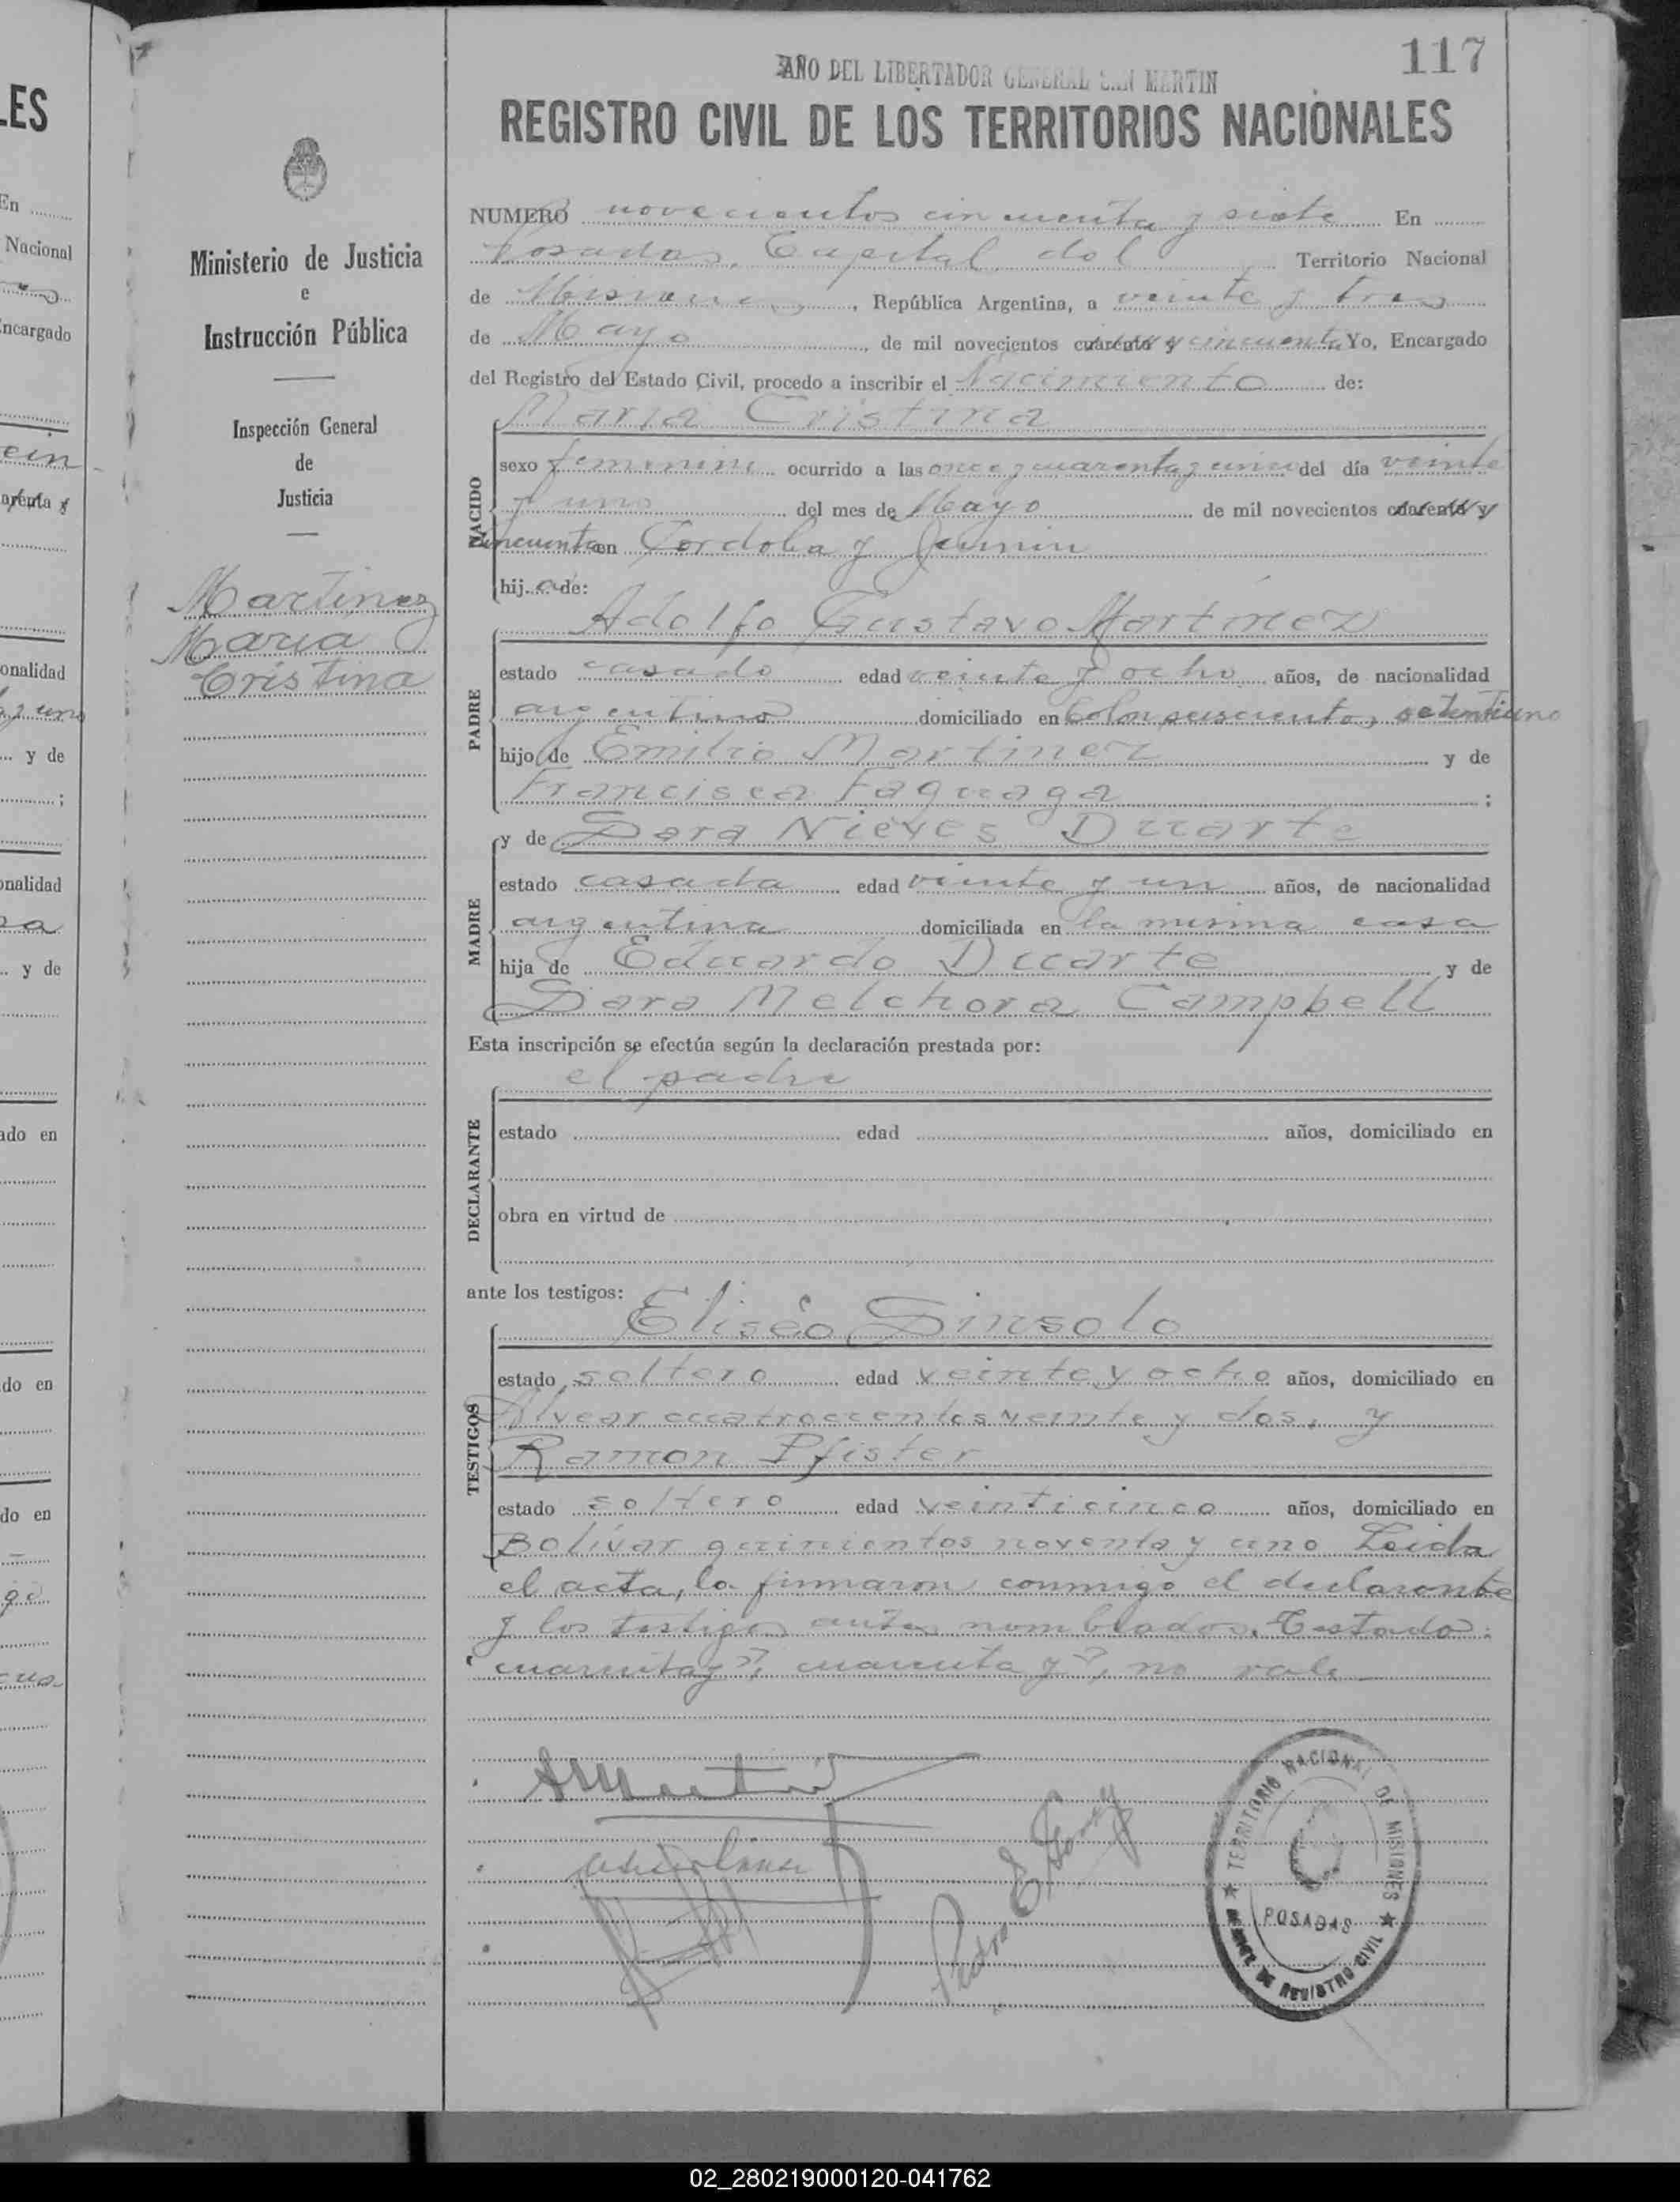 117
AÑO DEL LIBERTADOR GENERAL SAN MARTIN
REGISTRO CIVIL DE LOS TERRITORIOS NACIONALES
Ministerio de Justicia
e
Instrucción Pública
Inspección General
de
Justicia
Martinez
Maria
Cristina
NUMERO novecientos cincuenta y siete En
Posadas, Capital del Territorio Nacional
de Misiones, República Argentina, a veinte y tres
de Mayo, de mil novecientos cuarenta y cincuenta Yo, Encargado
del Registro del Estado Civil, procedo a inscribir el Nacimiento de:
Maria Cristina
NACIDO
sexo femenino ocurrido a las once y cuarenta y cinco del día veinte
y uno del mes de Mayo de mil novecientos cuarenta y
cincuenta en Cordoba y Junin
hij a de:
Adolfo Gustavo Martinez
PADRE
estado casado edad veinte y ocho años, de nacionalidad
argentino domiciliado en Colon seiscientos setentiuno
hijo de Emilio Martinez y de
Francisca Faguaga ;
y de Sara Nieves Duarte
MADRE
estado casada edad veinte y un años, de nacionalidad
argentina domiciliada en la misma casa
hija de Eduardo Duarte y de
Sara Melchora Campbell
Esta inscripción se efectúa según la declaración prestada por:
el padre
DECLARANTE
estado edad años, domiciliado en
obra en virtud de
ante los testigos:
Eliséo Sinsolo
TESTIGOS
estado soltero edad veinte y ocho años, domiciliado en
Alvear cuatrocientos veinte y dos, y
Ramon Pfister
estado soltero edad veinticinco años, domiciliado en
Bolívar quinientos noventa y uno Leida
el acta, la firmaron conmigo el declarante
y los testigos antes nombrados. Testado:
"cuarenta y", cuarenta y", no vale
Pedro E. Gomez
TERRITORIO NACIONAL DE MISIONES
POSADAS
DE REGISTRO CIVIL
LES
En
Nacional
Encargado
ein
arenta y
onalidad
y uno
y de
;
onalidad
y de
ado en
do en
do en
02_280219000120-041762